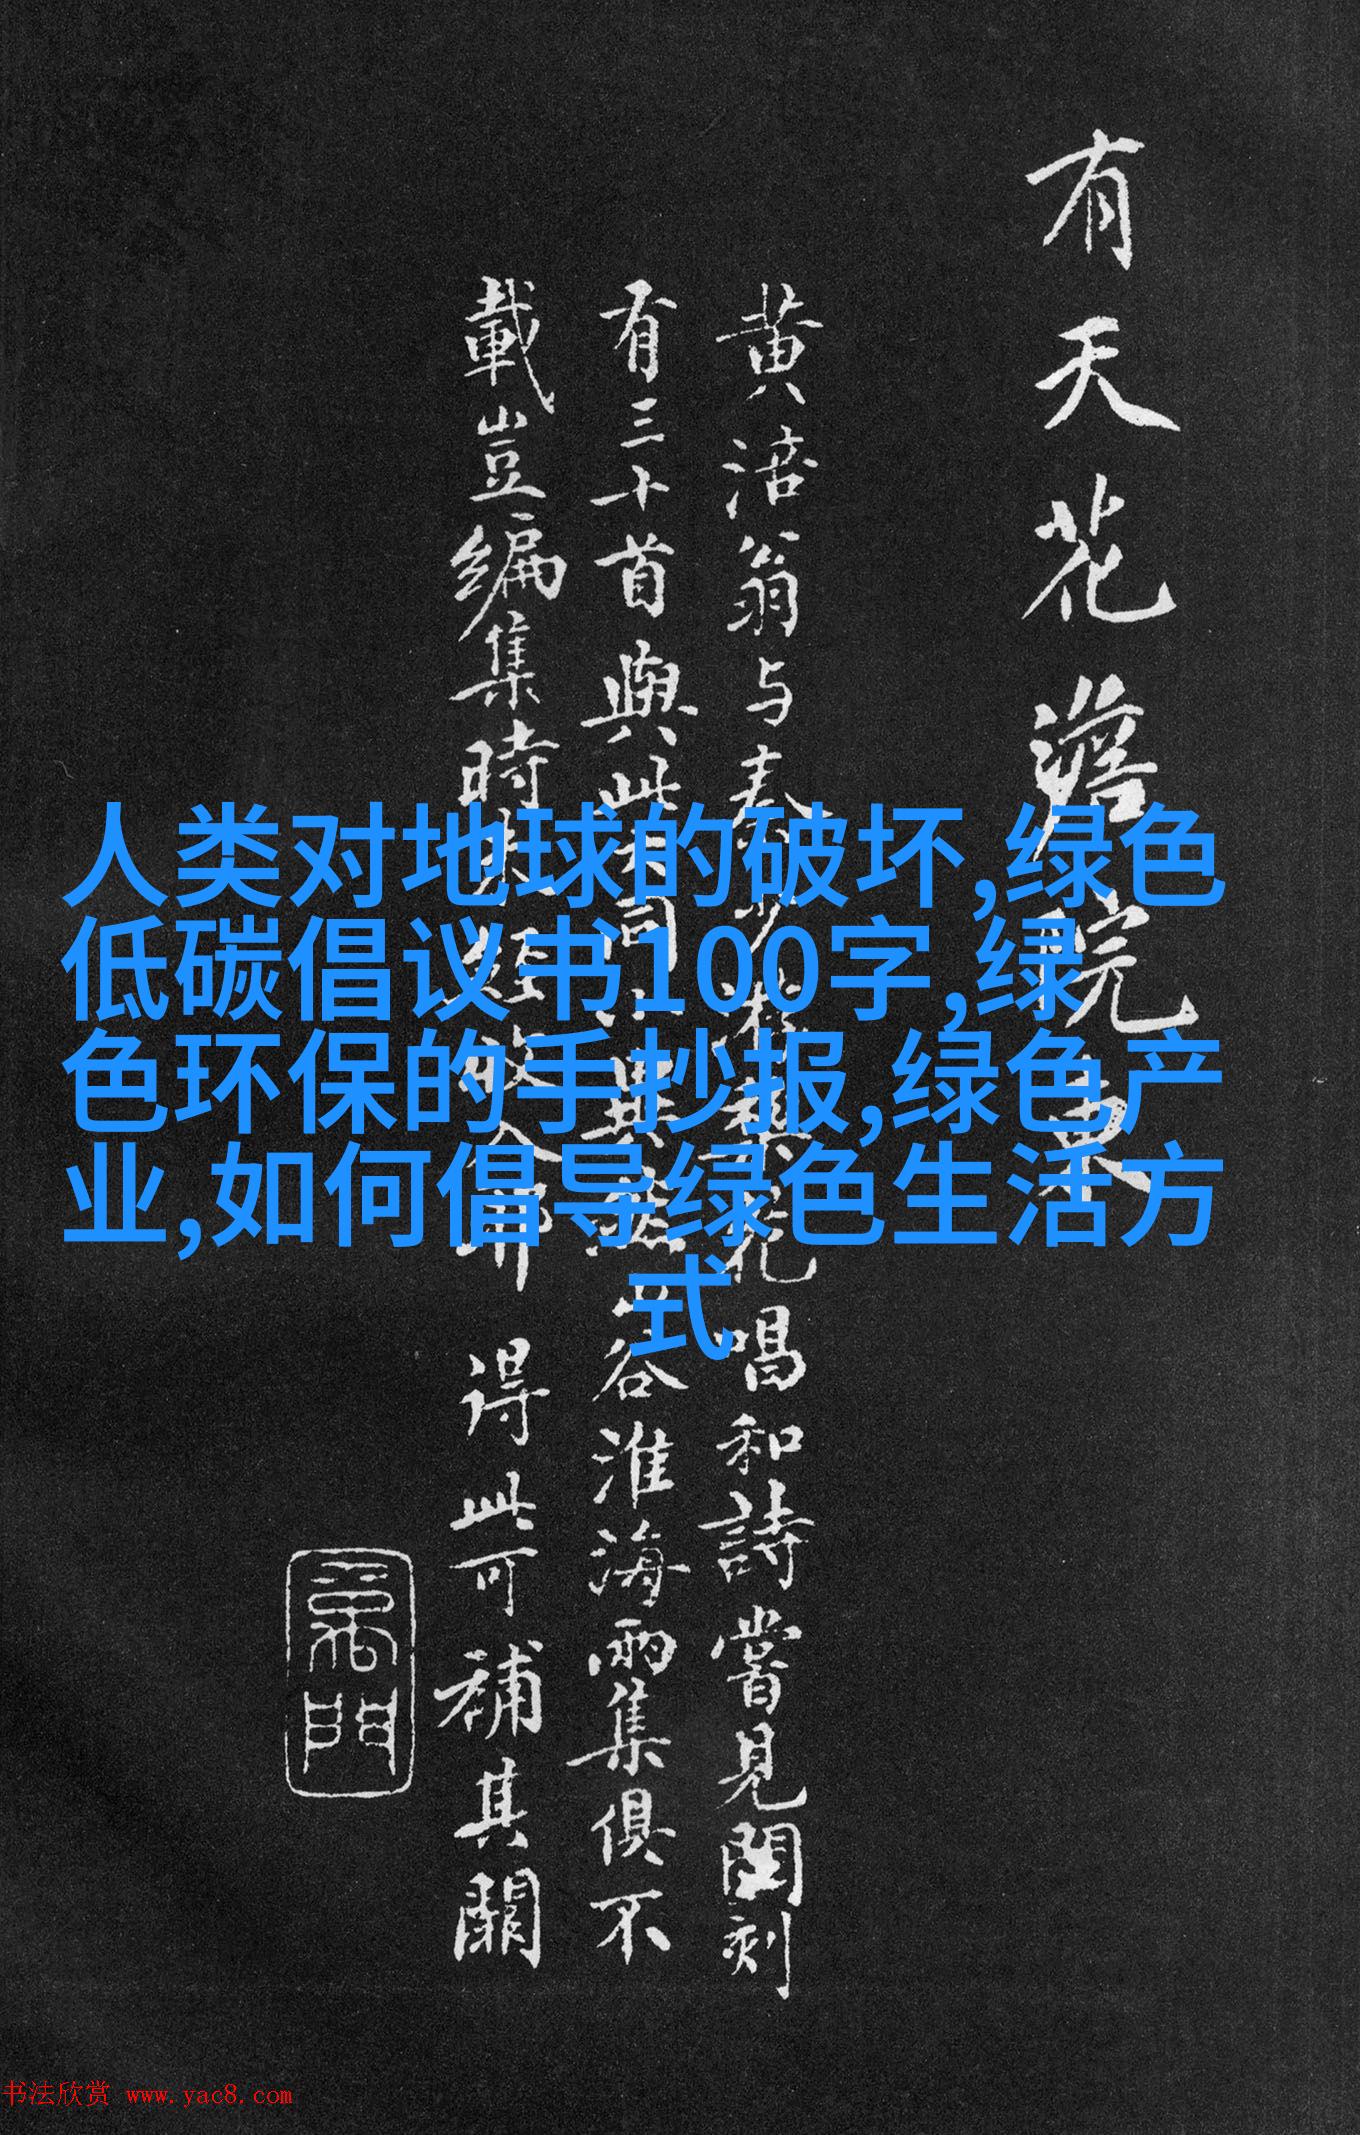 有天花院
黄涪翁与秦少游花唱和詩嘗見閩刻
有三十首與此大同小異然山谷淮海兩集俱不
載豈編集時未經收入耶 得此可補其闕
人类对地球的破坏,绿色
低碳倡议书100字,绿
色环保的手抄报,绿色产
业,如何倡导绿色生活方
式
书法欣赏 www.yac8.com